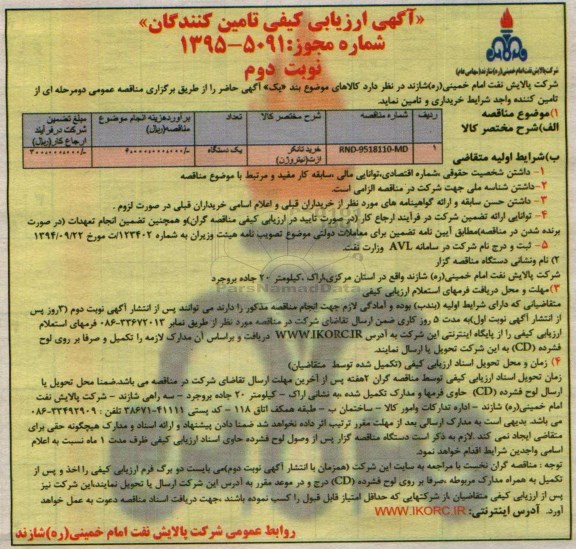 «آگهی ارزیابی کیفی تامین کنندگان»
شماره مجوز: ۵۰۹۱-۱۳۹۵
نوبت دوم
شرکت پالایش نفت امام خمینی(ره) شازند(سهامی عام)
شرکت پالایش نفت امام خمینی(ره)شازند در نظر دارد کالاهای موضوع بند «یک» آگهی حاضر را از طریق برگزاری مناقصه عمومی دومرحله ای از
تامین کننده واجد شرایط خریداری و تامین نماید.
۱)موضوع مناقصه
الف)شرح مختصر کالا
ردیف شماره مناقصه شرح مختصر کالا تعداد برآوردهزینه انجام موضوع مناقصه(ریال) مبلغ تضمین شرکت درفرآیند ارجاع کار(ریال)
۱ RND-9518110-MD خرید تانکر ازت(نیتروژن) یک دستگاه
ب)شرایط اولیه متقاضی
۱- داشتن شخصیت حقوقی ،شماره اقتصادی،توانایی مالی ،سابقه کار مفید و مرتبط با موضوع مناقصه
۲- داشتن شناسه ملی جهت شرکت در مناقصه الزامی است.
۳- داشتن حسن سابقه و ارائه گواهینامه های مورد نظر از خریداران قبلی و اعلام اسامی خریداران قبلی در صورت لزوم .
۴- توانایی ارائه تضمین شرکت در فرآیند ارجاع کار (در صورت تایید در ارزیابی کیفی مناقصه گران)و همچنین تضمین انجام تعهدات (در صورت
برنده شدن در مناقصه)مطابق آیین نامه تضمین برای معاملات دولتی موضوع تصویب نامه هیئت وزیران به شماره ۱۲۳۴۰۲/ت مورخ ۱۳۹۴/۰۹/۲۲
۵- ثبت و درج نام شرکت در سامانه AVL وزارت نفت.
۲) نام ونشانی دستگاه مناقصه گزار
شرکت پالایش نفت امام خمینی(ره) شازند واقع در استان مرکزی،اراک ،کیلومتر ۲۰ جاده بروجرد
ParsNamadData
۳)مهلت و محل دریافت فرمهای استعلام ارزیابی کیفی
متقاضیانی که دارای شرایط اولیه (بندب) بوده و آمادگی لازم جهت انجام مناقصه مذکور را دارند می توانند پس از انتشار آگهی نوبت دوم (۳روز پس
از انتشار آگهی نوبت اول)به مدت ۵ روز کاری ضمن ارسال تقاضای شرکت در مناقصه مورد نظر از طریق نمابر ۳۳۶۷۲۰۱۳-۰۸۶ فرمهای استعلام
ارزیابی کیفی را از پایگاه اینترنتی این شرکت به آدرس WWW.IKORC.IR دریافت و براساس آن مدارک لازمه را تکمیل و صرفا بر روی لوح
فشرده (CD) به این شرکت تحویل یا ارسال نمایند.
۴) زمان و محل تحویل اسناد ارزیابی کیفی (تکمیل شده توسط متقاضیان)
زمان تحویل اسناد ارزیابی کیفی توسط مناقصه گران ۲هفته پس از آخرین مهلت ارسال تقاضای شرکت در مناقصه می باشد.ضمنا محل تحویل یا
ارسال لوح فشرده (CD) حاوی فرمها و مدارک تکمیل شده ،به نشانی اراک - کیلومتر ۲۰ جاده بروجرد - سه راهی شازند - شرکت پالایش نفت
امام خمینی(ره) شازند - اداره تدارکات وامور کالا - ساختمان ب - طبقه همکف اتاق ۱۱۸ - کد پستی ۴۱۱۱۱-۳۸۶۷۱ تلفن : ۳۳۴۹۲۹۰۹-۰۸۶
می باشد. بدیهی است به مدارک ارسالی بعد از مهلت مقرر ترتیب اثر داده نخواهد شد ضمنا دادن پیشنهاد و ارائه اسناد و مدارک هیچگونه حقی برای
متقاضی ایجاد نمی کند .لازم به ذکر است دستگاه مناقصه گزار پس از وصول لوح فشرده حاوی اسناد ارزیابی کیفی ظرف مدت ۱ ماه نسبت به اعلام
اسامی واجدین شرایط اقدام خواهد نمود.
توجه : مناقصه گران نخست با مراجعه به سایت این شرکت (همزمان با انتشار آگهی نوبت دوم)می بایست دو برگ فرم ارزیابی کیفی را اخذ و پس از
تکمیل به همراه مدارک مربوطه ،صرفا بر روی لوح فشرده (CD) درج و در موعد مقرر به آدرس این شرکت ارسال یا تحویل نمایند،این شرکت نیز
پس از ارزیابی کیفی متقاضیان ،از شرکتهایی که حداقل امتیاز قابل قبول را کسب نموده باشند ،جهت دریافت اسناد مناقصه دعوت به عمل خواهد
آورد. آدرس اینترنتی: WWW.IKORC.IR
روابط عمومی شرکت پالایش نفت امام خمینی(ره)شازند